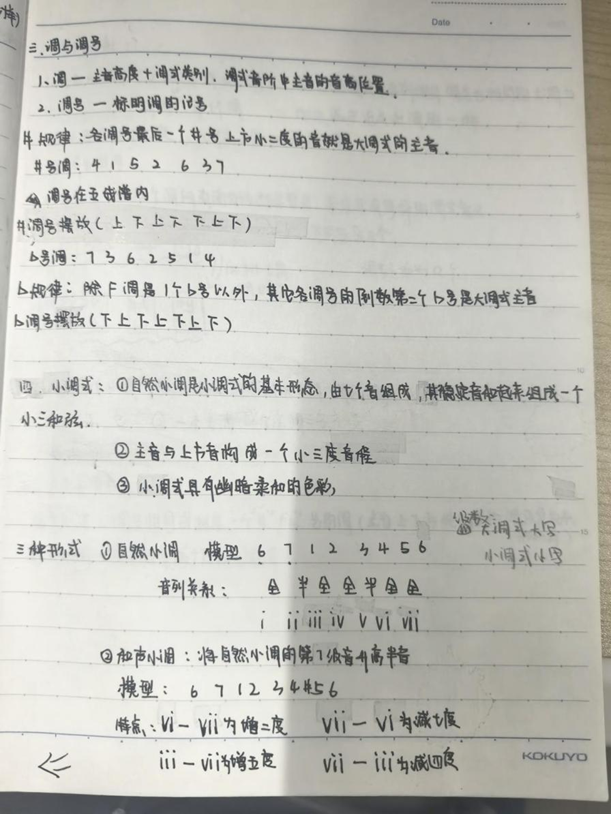 Date
三.调与调号
1、调 — 主音高度 + 调式类别. 调式音阶中主音的音高位置.
2、调号 — 标明调的记号
#规律:各调号最后一个#号上方小二度的音就是大调式的主音.
#号调:4 1 5 2 6 3 7
调号在五线谱内
#调号摆放(上下上下下上下)
b号调:7 3 6 2 5 1 4
b规律:除F调是1个b号以外,其它各调号的倒数第二个b号是大调式主音
b调号摆放(下上下上下上下)
四. 小调式:①自然小调是小调式的基本形态,由七个音组成,其稳定音和起来组成一个
小三和弦.
②主音与上中音构成一个小三度音程
③小调式具有幽暗柔和的色彩
级数:大调式大写
小调式小写
三种形式 ①自然小调 模型 6 7 1 2 3 4 5 6
音列关系: 全 半 全 全 半 全 全
i ii iii iv v vi vii
②和声小调:将自然小调的第7级音升高半音
模型: 6 7 1 2 3 4 #5 6
特点:vi — vii为增二度 vii — vi为减七度
iii — vii为增五度 vii — iii为减四度
KOKUYO